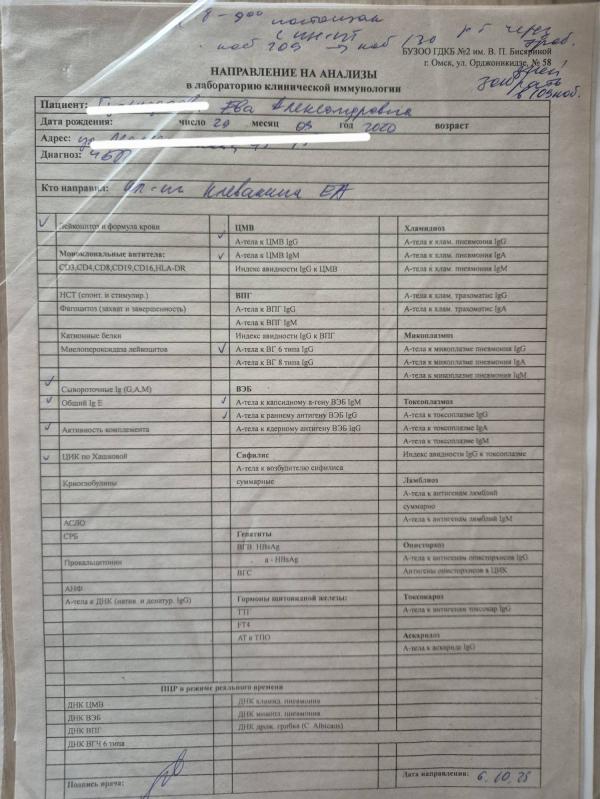 БУЗОО ГДКБ №2 им. В. П. Бисяриной
г. Омск, ул. Орджоникидзе, № 58
НАПРАВЛЕНИЕ НА АНАЛИЗЫ
в лабораторию клинической иммунологии
Пациент: Ева Александровна
Дата рождения: число 20 месяц 03 год возраст
Адрес:
Диагноз: ЧБД
Кто направил:
Лейкоциты и формула крови ЦМВ Хламидиоз
А-тела к ЦМВ IgG А-тела к хлам. пневмония IgG
Моноклональные антитела: А-тела к ЦМВ IgM А-тела к хлам. пневмония IgA
CD3,CD4,CD8,CD19,CD16,HLA-DR Индекс авидности IgG к ЦМВ А-тела к хлам. пневмония IgM
НСТ (спонт. и стимулир.) ВПГ А-тела к хлам. трахоматис IgG
Фагоцитоз (захват и завершенность) А-тела к ВПГ IgG А-тела к хлам. трахоматис IgA
А-тела к ВПГ IgM
Катионные белки Индекс авидности IgG к ВПГ Микоплазмоз
Миелопероксидаза лейкоцитов А-тела к ВГ 6 типа IgG А-тела к микоплазме пневмония IgG
А-тела к ВГ 8 типа IgG А-тела к микоплазме пневмония IgA
А-тела к микоплазме пневмония IgM
Сывороточные Ig (G,A,M) ВЭБ
Общий Ig E А-тела к капсидному а-гену ВЭБ IgM Токсоплазмоз
А-тела к раннему антигену ВЭБ IgG А-тела к токсоплазме IgG
Активность комплемента А-тела к ядерному антигену ВЭБ IgG А-тела к токсоплазме IgA
А-тела к токсоплазме IgM
ЦИК по Хашковой Сифилис Индекс авидности IgG к токсоплазме
А-тела к возбудителю сифилиса
Криоглобулины суммарные Лямблиоз
А-тела к антигенам лямблий
суммарно
АСЛО А-тела к антигенам лямблий IgM
СРБ Гепатиты
ВГВ HBsAg Описторхоз
Прокальцитонин а - HBsAg А-тела к антигенам описторхисов IgG
ВГС Антигены описторхисов в ЦИК
АНФ
А-тела к ДНК (натив. и денатур. IgG) Гормоны щитовидной железы: Токсокароз
ТТГ А-тела к антигенам токсокар IgG
FT4
АТ к ТПО Аскаридоз
А-тела к аскариде IgG
ПЦР в режиме реального времени
ДНК ЦМВ ДНК хламид. пневмония
ДНК ВЭБ ДНК микопл. пневмония
ДНК ВПГ ДНК дрож. грибка (C. Albicans)
ДНК ВГЧ 6 типа
Подпись врача: Дата направления: 6.10.25